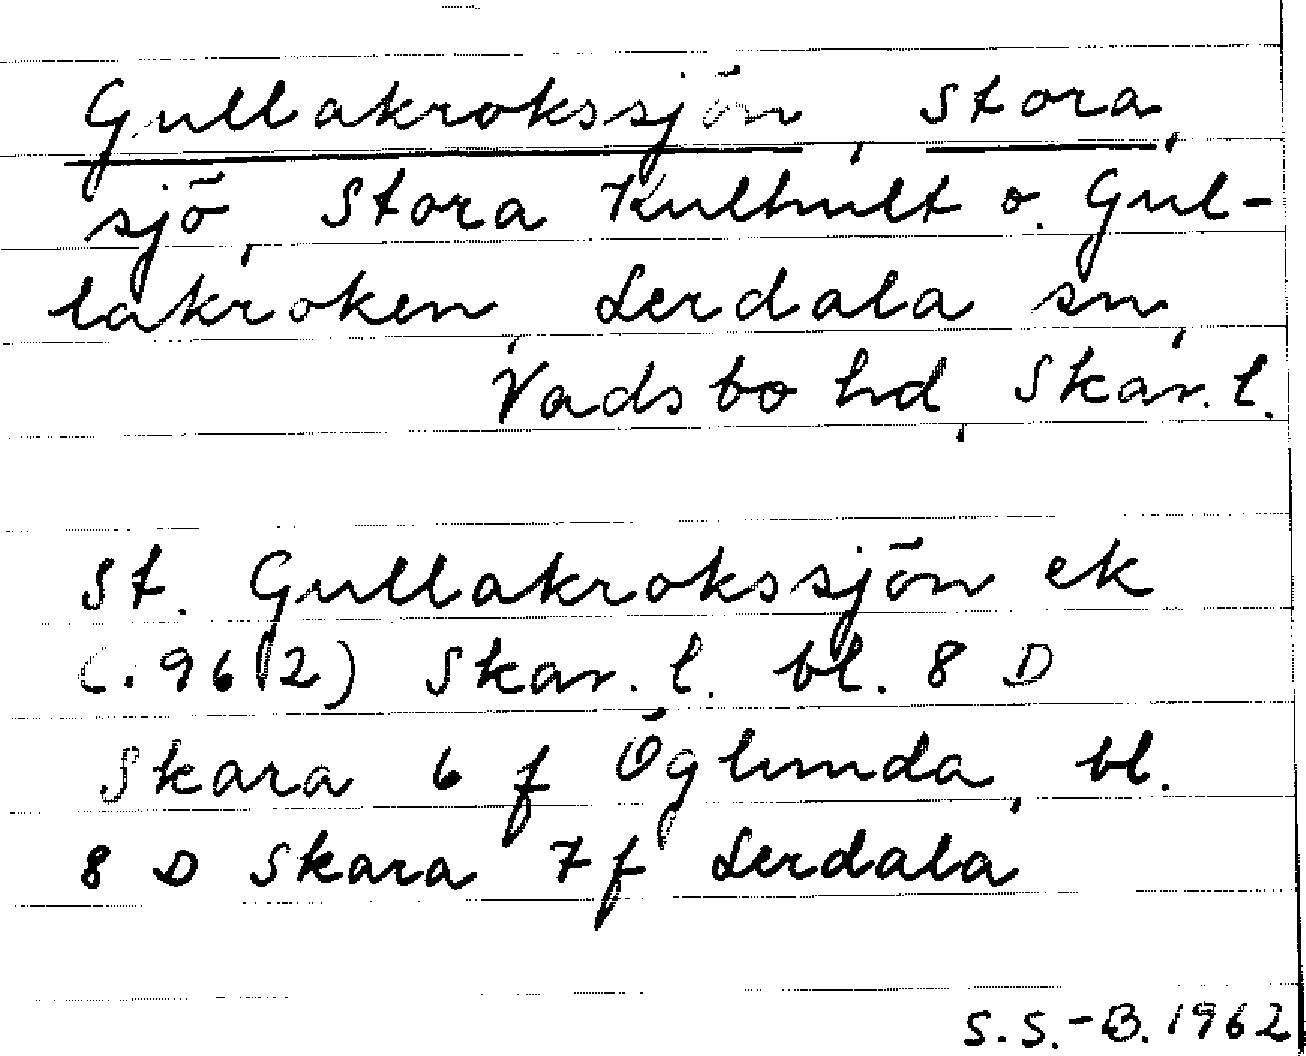 Gullakrokssjön, Stora,
sjö, Stora Kulhult o. Gul-
lakroken, Lerdala sn,
Vadsbo hd, Skar. l.
St. Gullakrokssjön ek
(.962) Skar. l. bl. 8 D
Skara 6 f Öglunda, bl.
8 D Skara 7 f Lerdala
S. S.-B. 1962